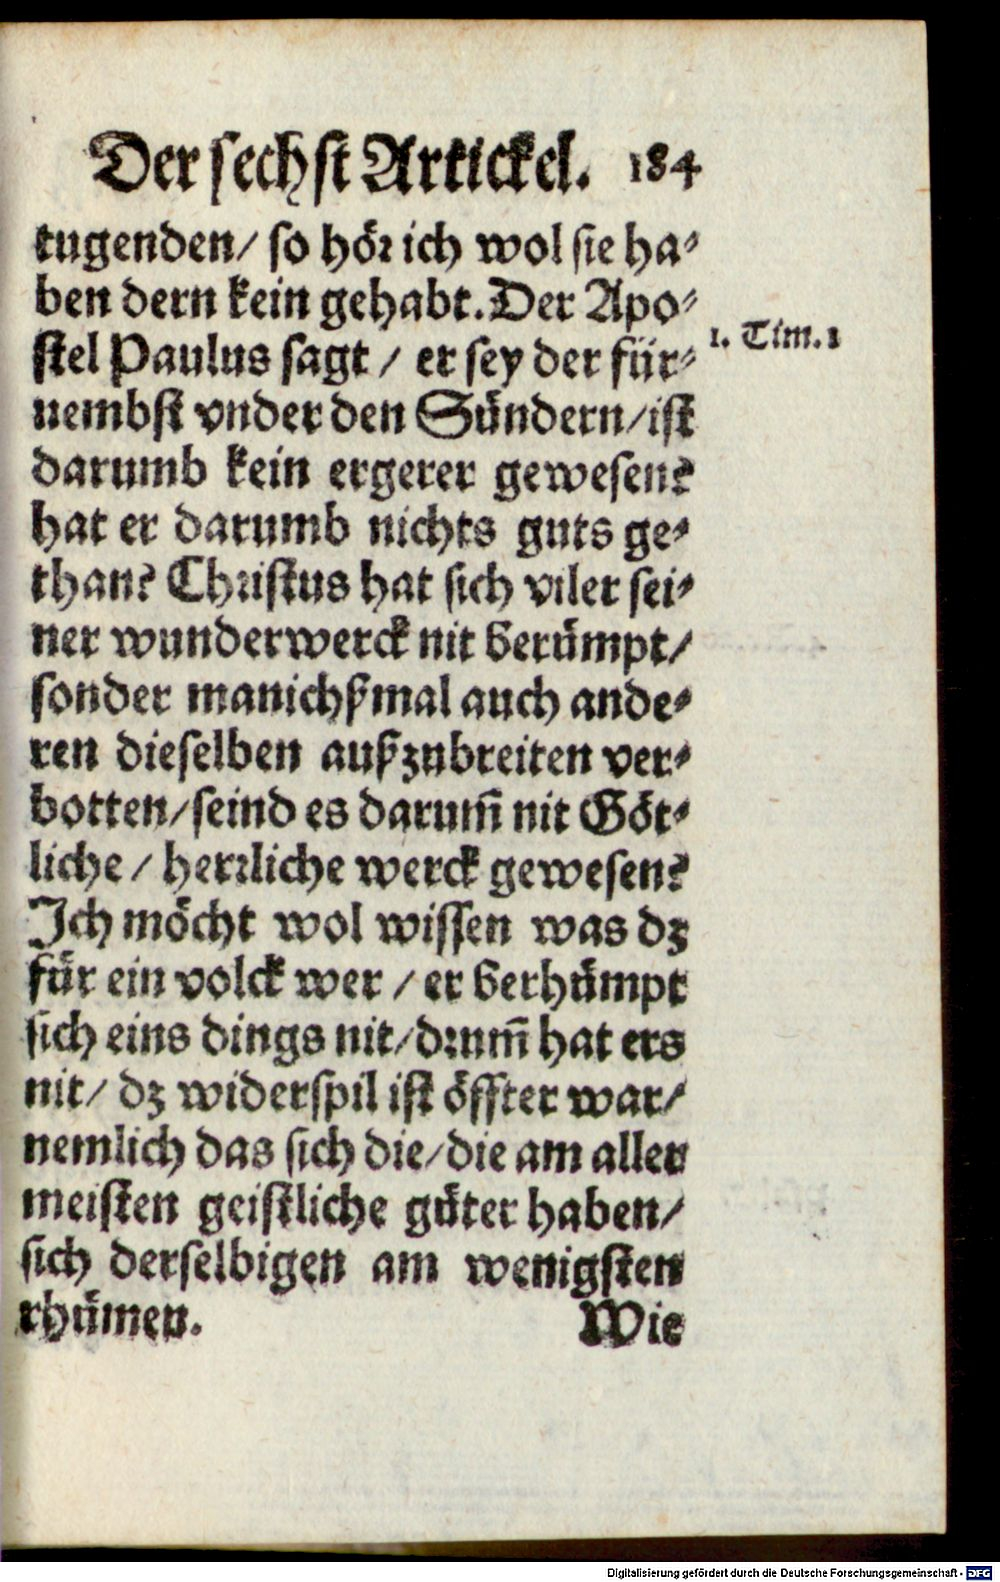 Der sechst Artickel. 184
tugenden/ so hör ich wol sie ha-
ben dern kein gehabt. Der Apo-
stel Paulus sagt / er sey der für-
nembst vnder den Sündern/ist
darumb kein ergerer gewesen?
hat er darumb nichts guts ge-
than? Christus hat sich viler sei-
ner wunderwerck nit berümpt/
sonder manichßmal auch ande-
ren dieselben außzubreiten ver-
botten/seind es darum̃ nit Göt-
liche / herrliche werck gewesen?
Ich möcht wol wissen was dz
für ein volck wer / er berhümpt
sich eins dings nit/drum̃ hat ers
nit/ dz widerspil ist öffter war/
nemlich das sich die/die am aller
meisten geistliche güter haben/
sich derselbigen am wenigsten
rhümen. Wie
1. Tim. 1
Digitalisierung gefördert durch die Deutsche Forschungsgemeinschaft - DFG